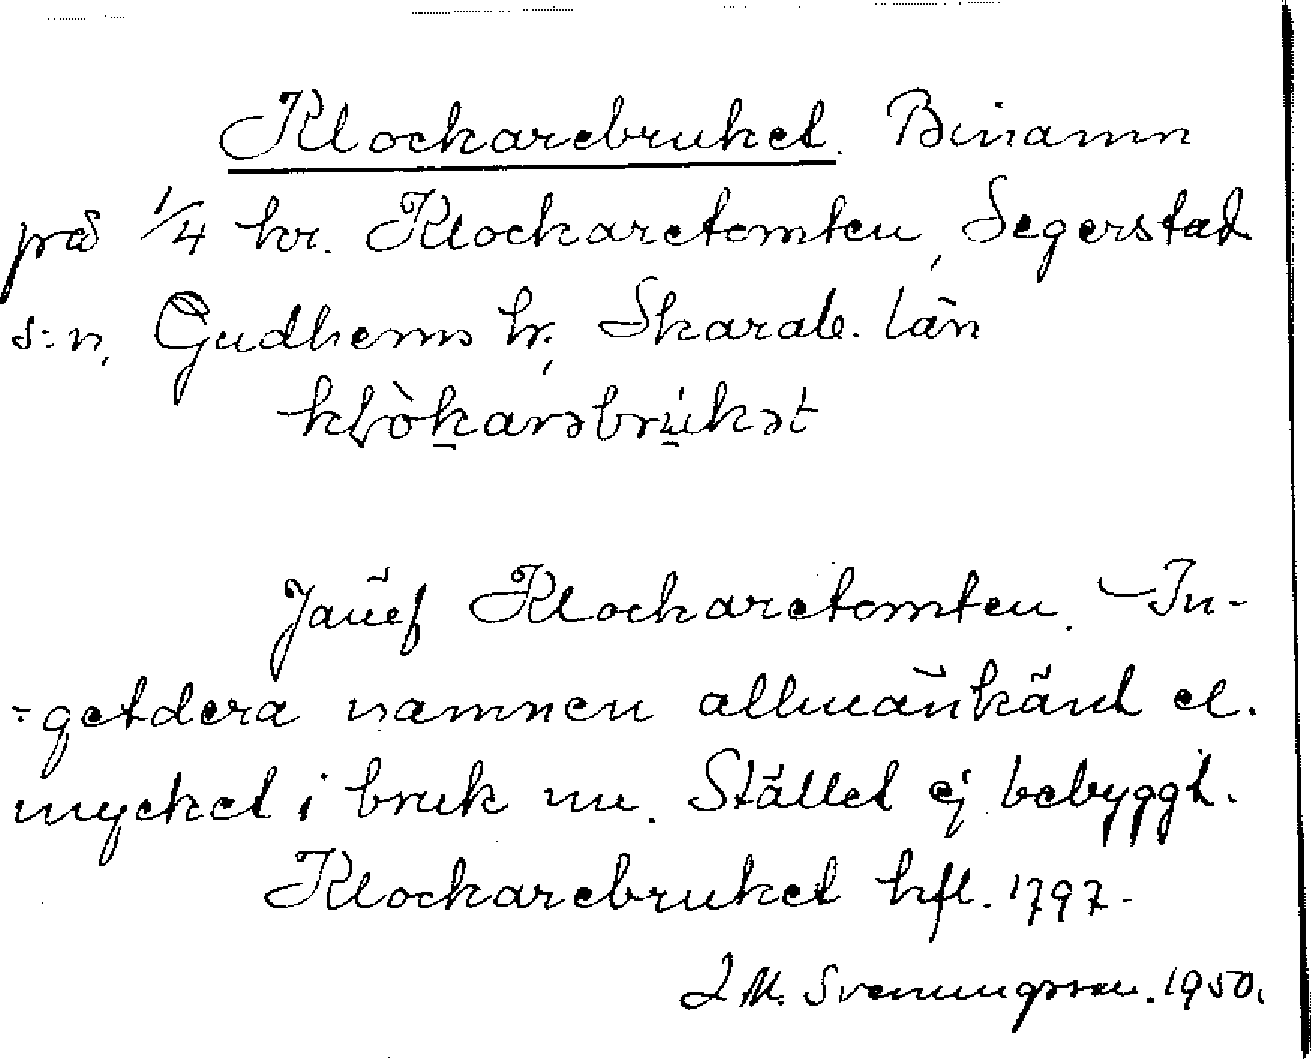 Klockarebruket. Binamn
på 1/4 hr. Klockaretomten, Segerstad
s:n, Gudhems hr., Skarab. län
klòkarəbrukət
Jämf Klockaretomten. – In-
-getdera namnen allmänkänt el.
mycket i bruk nu. Stället ej bebyggt.
Klockarebruket hfl. 1797.
I. M. Svenungsson. 1950.